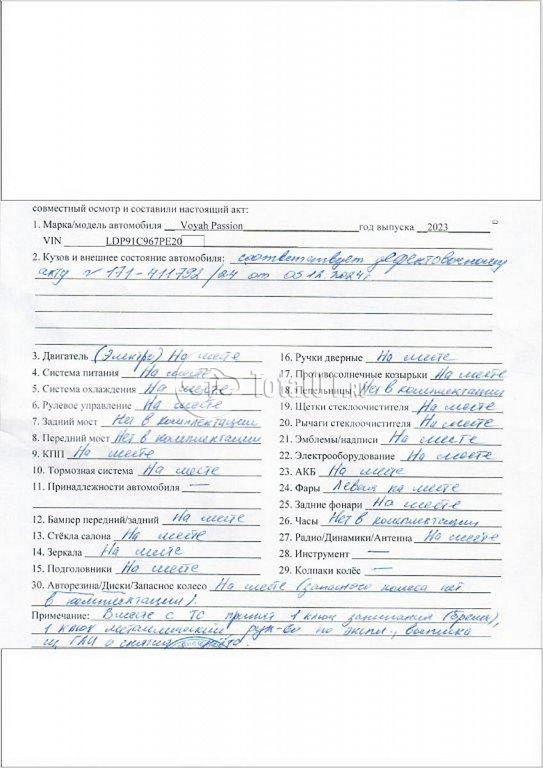 совместный осмотр и составили настоящий акт:
1. Марка/модель автомобиля Voyah Passion год выпуска 2023
VIN LDP91C967PE20
2. Кузов и внешнее состояние автомобиля: соответствует дефектовочному
акту № 171-411792/04 от 05.12.2024г
3. Двигатель (Электро) На месте
4. Система питания На месте
5. Система охлаждения На месте
6. Рулевое управление На месте
7. Задний мост Нет в комплектации
8. Передний мост Нет в комплектации
9. КПП На месте
10. Тормозная система На месте
11. Принадлежности автомобиля —
12. Бампер передний/задний На месте
13. Стёкла салона На месте
14. Зеркала На месте
15. Подголовники На месте
16. Ручки дверные На месте
17. Противосолнечные козырьки На месте
18. Пепельницы Нет в комплектации
19. Щетки стеклоочистителя На месте
20. Рычаги стеклоочистителя На месте
21. Эмблемы/надписи На месте
22. Электрооборудование На месте
23. АКБ На месте
24. Фары Левая на месте
25. Задние фонари На месте
26. Часы Нет в комплектации
27. Радио/Динамики/Антенна На месте
28. Инструмент —
29. Колпаки колёс —
30. Авторезина/Диски/Запасное колесо На месте (запасного колеса нет
в комплектации).
Примечание: Вместе с ТС принят 1 ключ зажигания (брелок),
1 ключ металлический, рук-во по экспл., выписка
из ГАИ о снятии